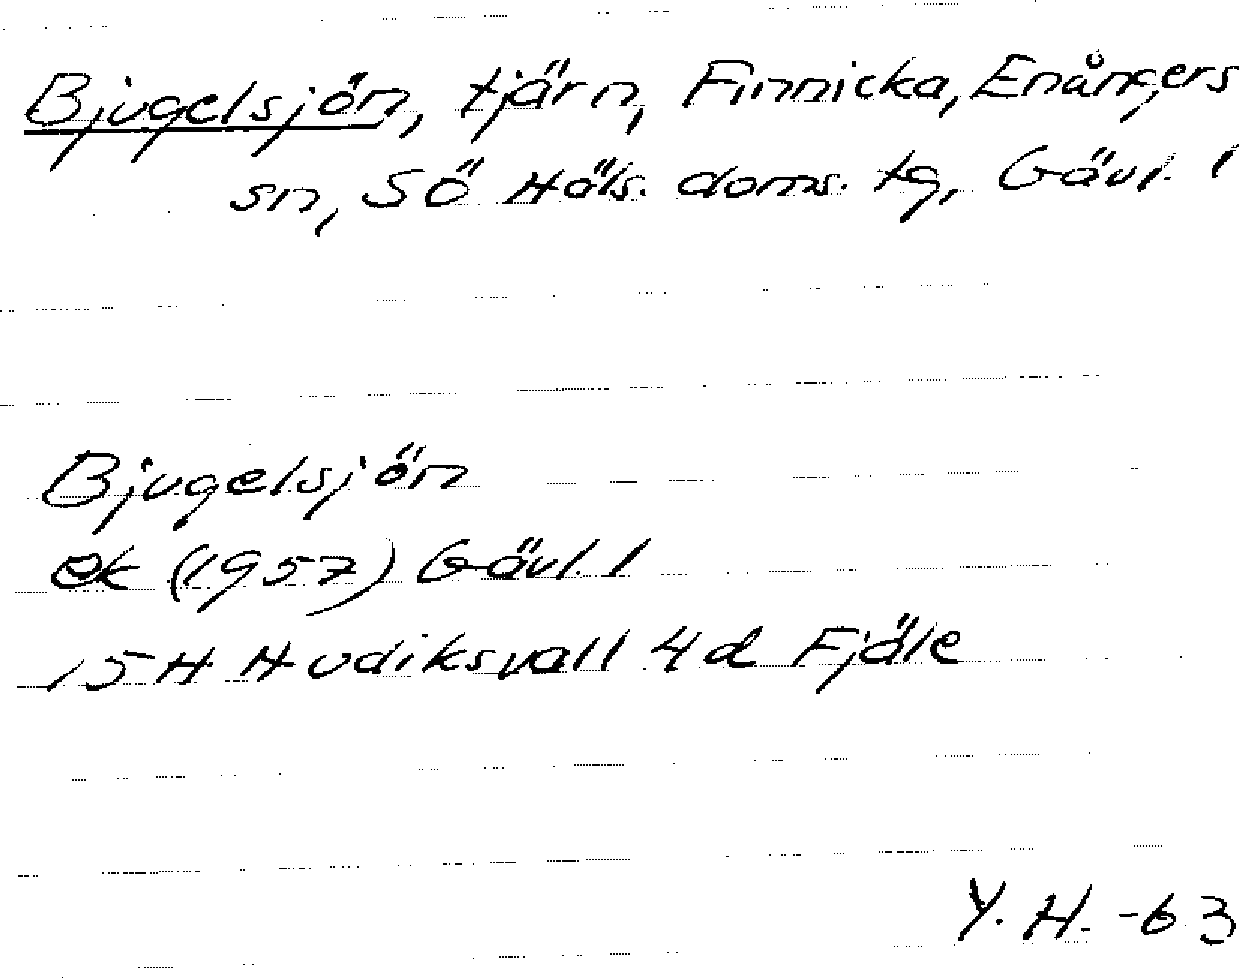 Bjugelsjön, tjärn, Finnicka, Enångers
sn, Sö Häls. doms. tg, Gävl. l
Bjugelsjön
ek (1957) Gävl. l
15H Hudiksvall 4d Fjäle
Y. H. -63